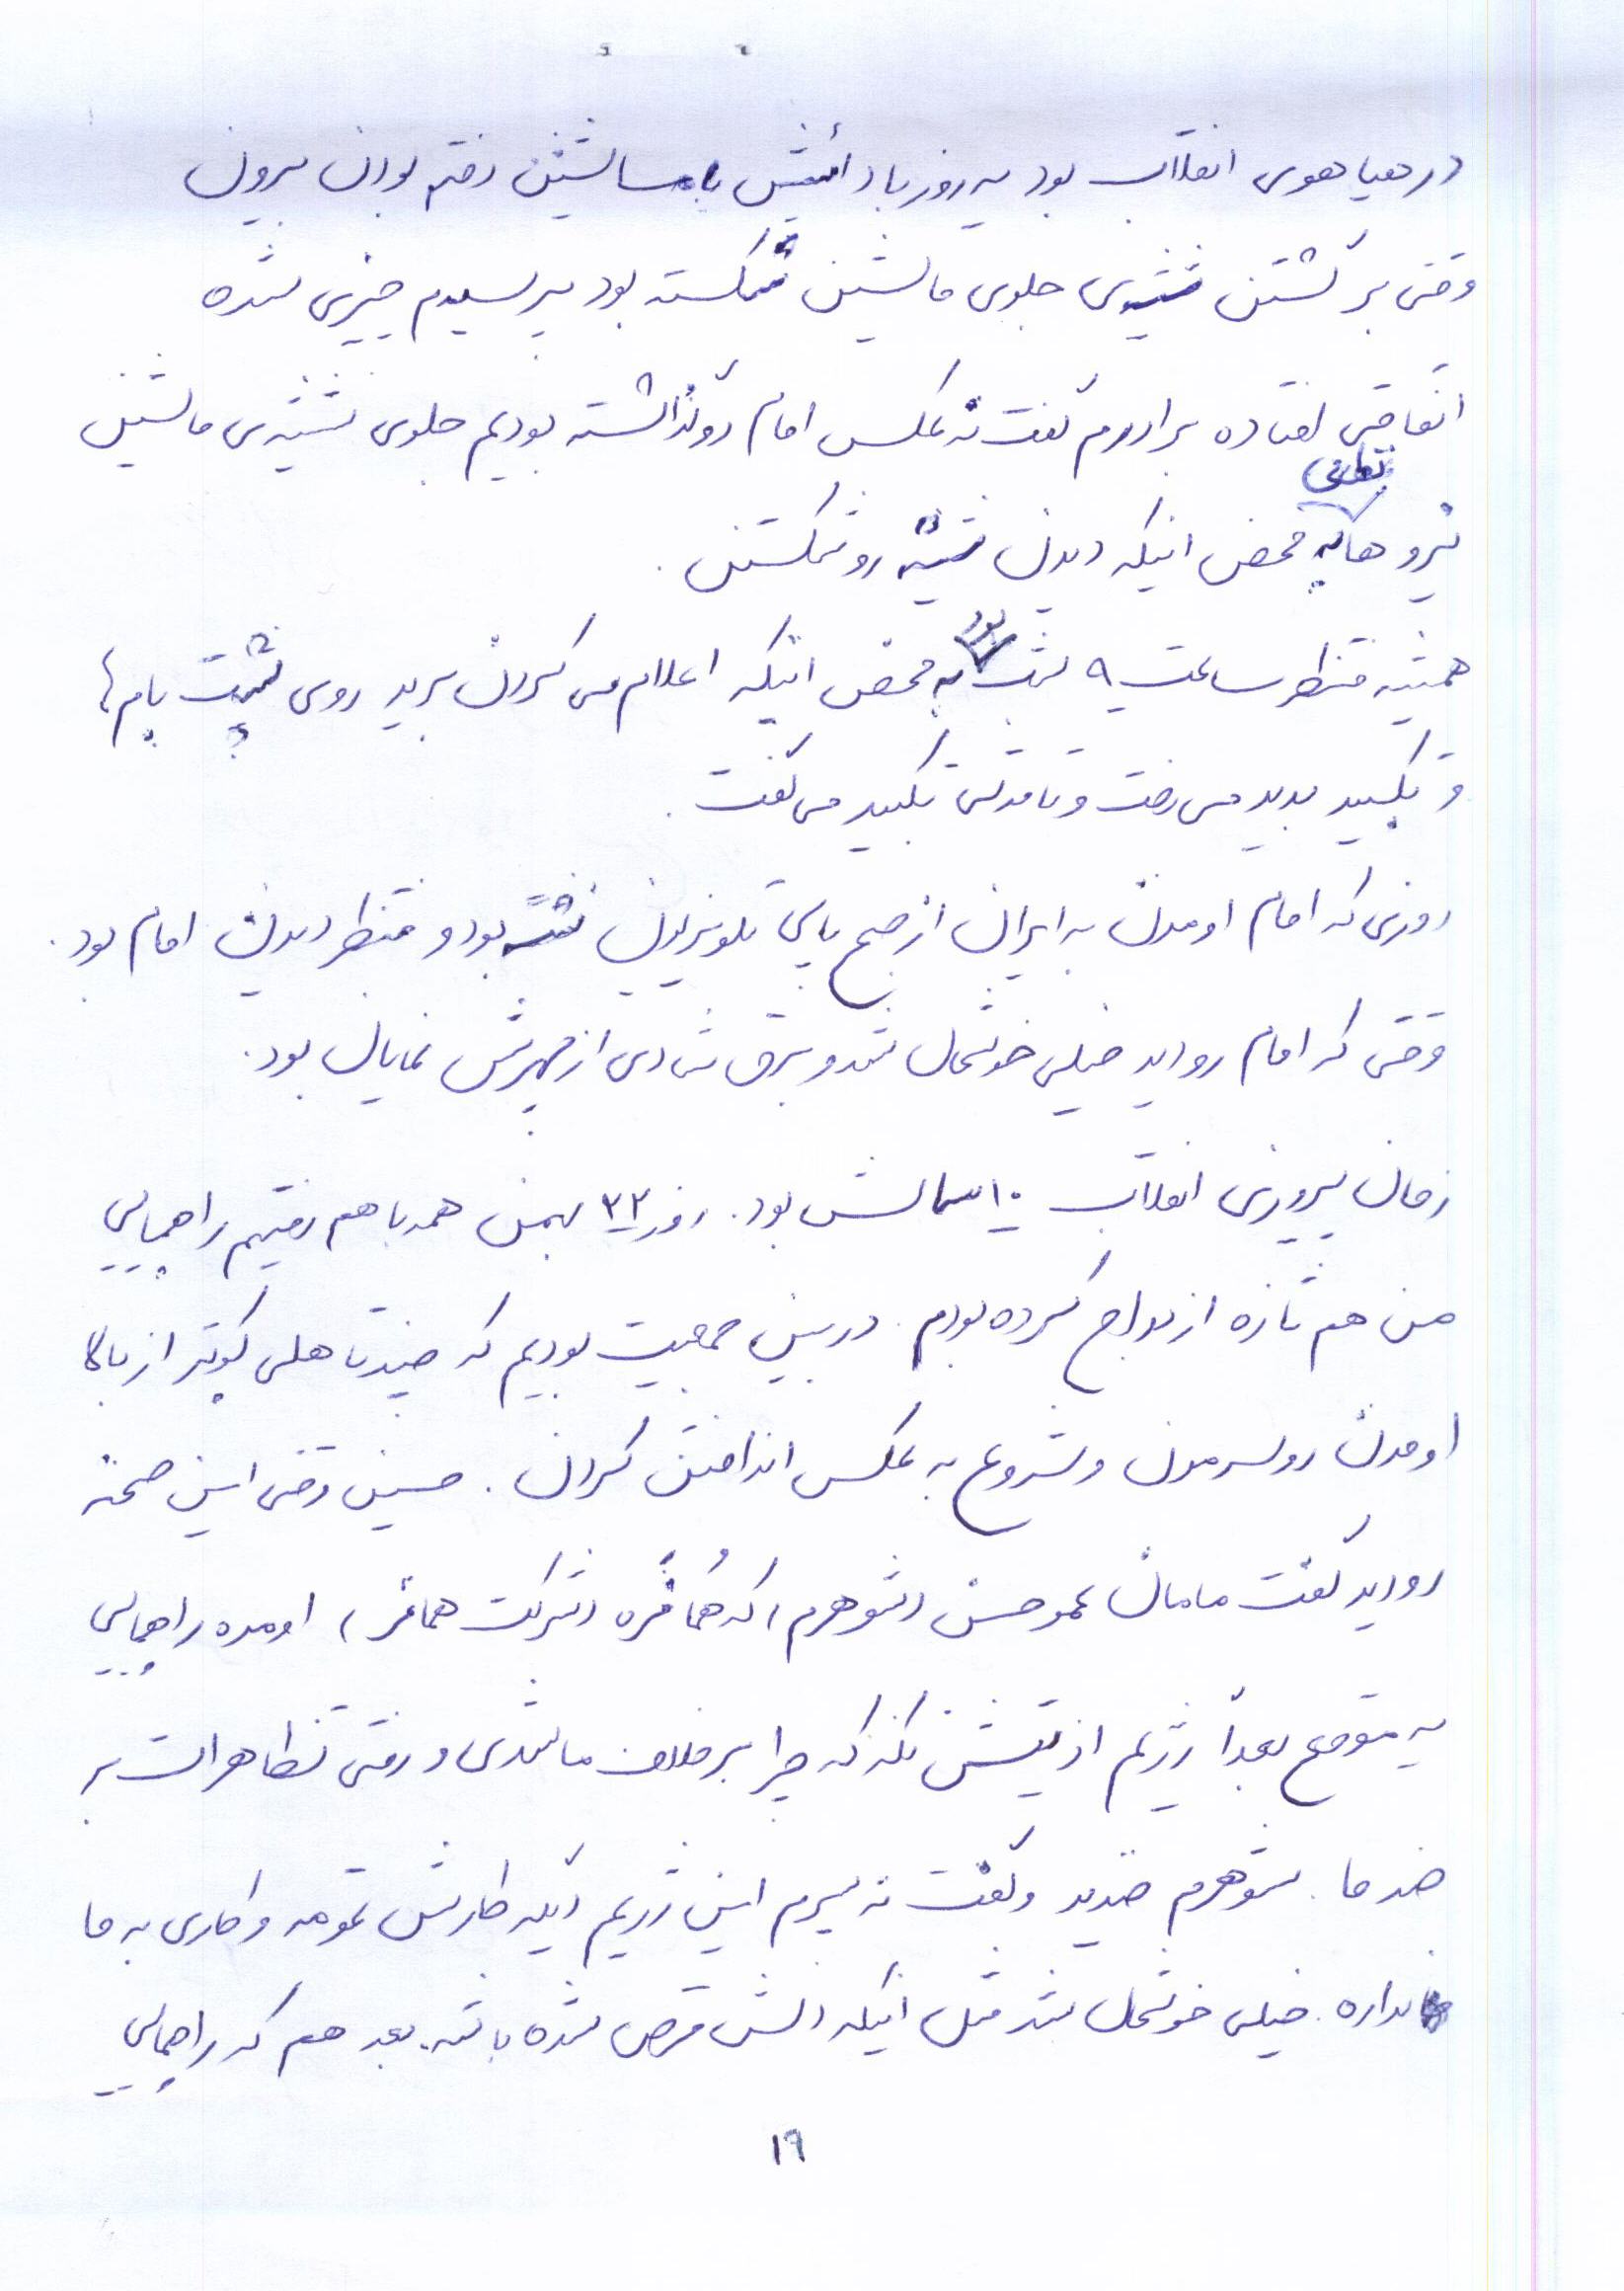 در هیاهوی انقلاب بود یه روز با دائیش با ماشینش رفته بودن بیرون
وقتی برگشتن شیشه‌ی جلوی ماشین شکسته بود پرسیدم چیزی شده
اتفاقی افتاده برادرم گفت نه عکس امام رو گذاشته بودیم جلوی شیشه‌ی ماشین
نیروها به محض اینکه دیدن شیشه رو شکستن.
همیشه منتظر ساعت ۹ شب بود به محض اینکه اعلام می کردن برید روی پشت بام‌ها
و تکبیر بدید می رفت و تا مدتی تکبیر می گفت.
روزی که امام اومدن به ایران از صبح پای تلویزیون نشسته بود و منتظر دیدن امام بود.
وقتی که امام رو دید خیلی خوشحال شد و برق شادی از چهرش نمایان بود.
زمان پیروزی انقلاب ۱۰ سالش بود. روز ۲۲ بهمن همه با هم رفتیم راهپیمایی
من هم تازه ازدواج کرده بودم. در بین جمعیت بودیم که چندتا هلی کوپتر از بالا
اومدن رو سرمون و شروع به عکس انداختن کردن. حسین وقتی این صحنه
رو دید گفت مامان عمو حسن (شوهرم) که هُمافَره (شرکت همافر) اومده راهپیمایی
یه موقع بعداً رژیم اذیتش نکنه که چرا برخلاف ما شدی و رفتی تظاهرات بر
ضد ما. شوهرم خندید و گفت نه پسرم این رژیم دیگه کارش تمومه و کاری به ما
نداره. خیلی خوشحال شد مثل اینکه دلش قرص شده باشه. بعد هم که راهپیمایی
۱۹